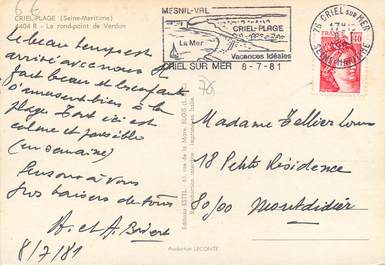 6 €
CRIEL-PLAGE (Seine-Maritime)
4404 R - Le rond-point de Verdun
MESNIL-VAL
CRIEL-PLAGE
La Mer
Vacances Idéales
CRIEL SUR MER 8-7-81
76 CRIEL SUR MER
SEINE-MARITIME
FRANCE
1,40
Le beau temps est
arrivé avec nous il
fait beau et les enfants
s'amusent bien à la
plage Tout ici est
calme et paisible
(en semaine)
Pensons à vous
Gros baisers de tous
8/7/81
Madame Tellier Louis
18 Petite Résidence
80500 Montdidier
Production LECONTE